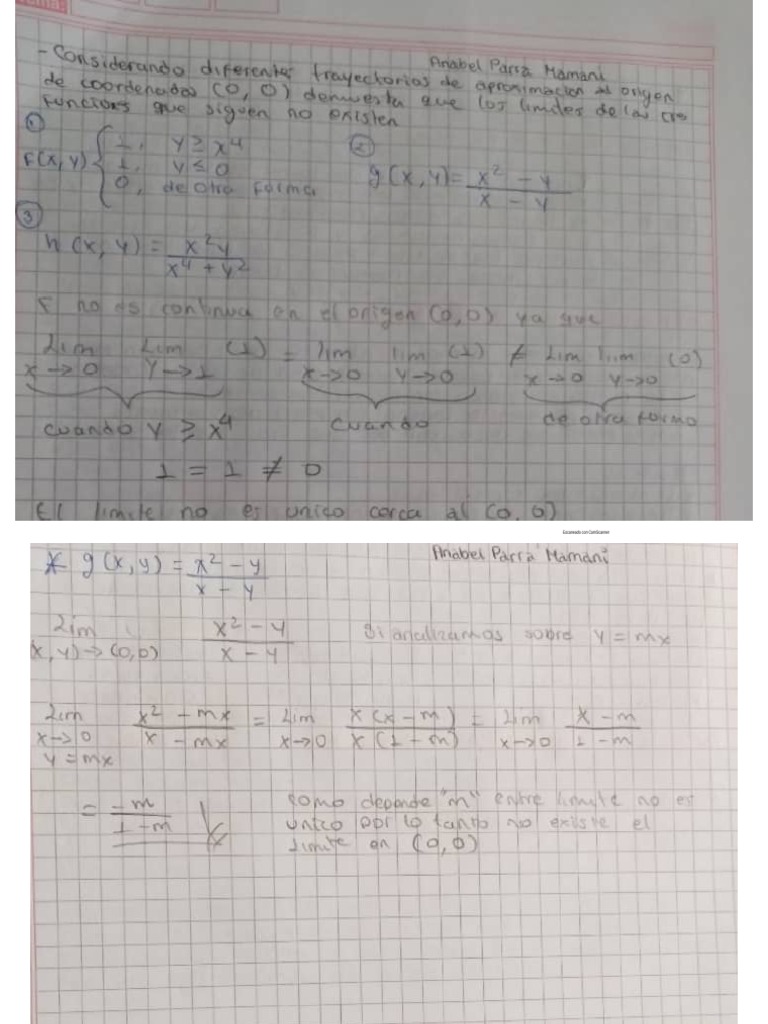 Anabel Parra Mamani
- Considerando diferentes trayectorias de aproximacion al origen
de coordenadas (0, 0) demuestra que los limites de las
funciones que siguen no existen
①
f(x, y) { 1, y ≥ x⁴
1, y ≤ 0
0, de otra forma
② g(x, y) = x² - y / x - y
③
h(x, y) = x²y / x⁴ + y²
F no es continua en el origen (0, 0) ya que
Lim x→0 Lim y→1 (1) = lim x→0 lim y→0 (1) ≠ Lim x→0 lim y→0 (0)
cuando y ≥ x⁴ cuando de otra forma
1 = 1 ≠ 0
El limite no es unico cerca al (0, 0)
Escaneado con CamScanner
Anabel Parra Mamani
* g(x, y) = x² - y / x - y
Lim (x, y)→(0,0) x² - y / x - y Si analizamos sobre y = mx
Lim x→0 y = mx x² - mx / x - mx = Lim x→0 x(x - m) / x(1 - m) = Lim x→0 x - m / 1 - m
= -m / 1 - m
como depende "m" entre limite no es
unico por lo tanto no existe el
limite en (0, 0)